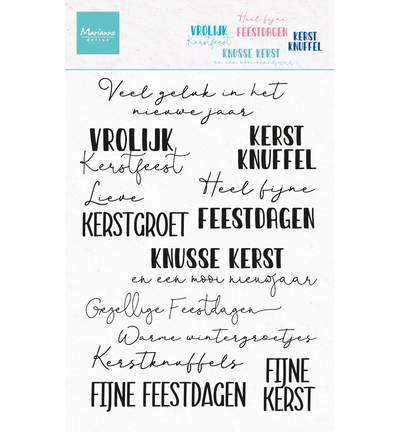 Marianne
design
VROLIJK
Kerstfeest
Heel fijne
FEESTDAGEN
KERST
KNUFFEL
KNUSSE KERST
en een mooi nieuwjaar
Veel geluk in het
nieuwe jaar
VROLIJK
Kerstfeest
KERST
KNUFFEL
Lieve
KERSTGROET
Heel fijne
FEESTDAGEN
KNUSSE KERST
en een mooi nieuwjaar
Gezellige Feestdagen
Warme wintergroetjes
Kerstknuffels
FIJNE FEESTDAGEN
FIJNE
KERST